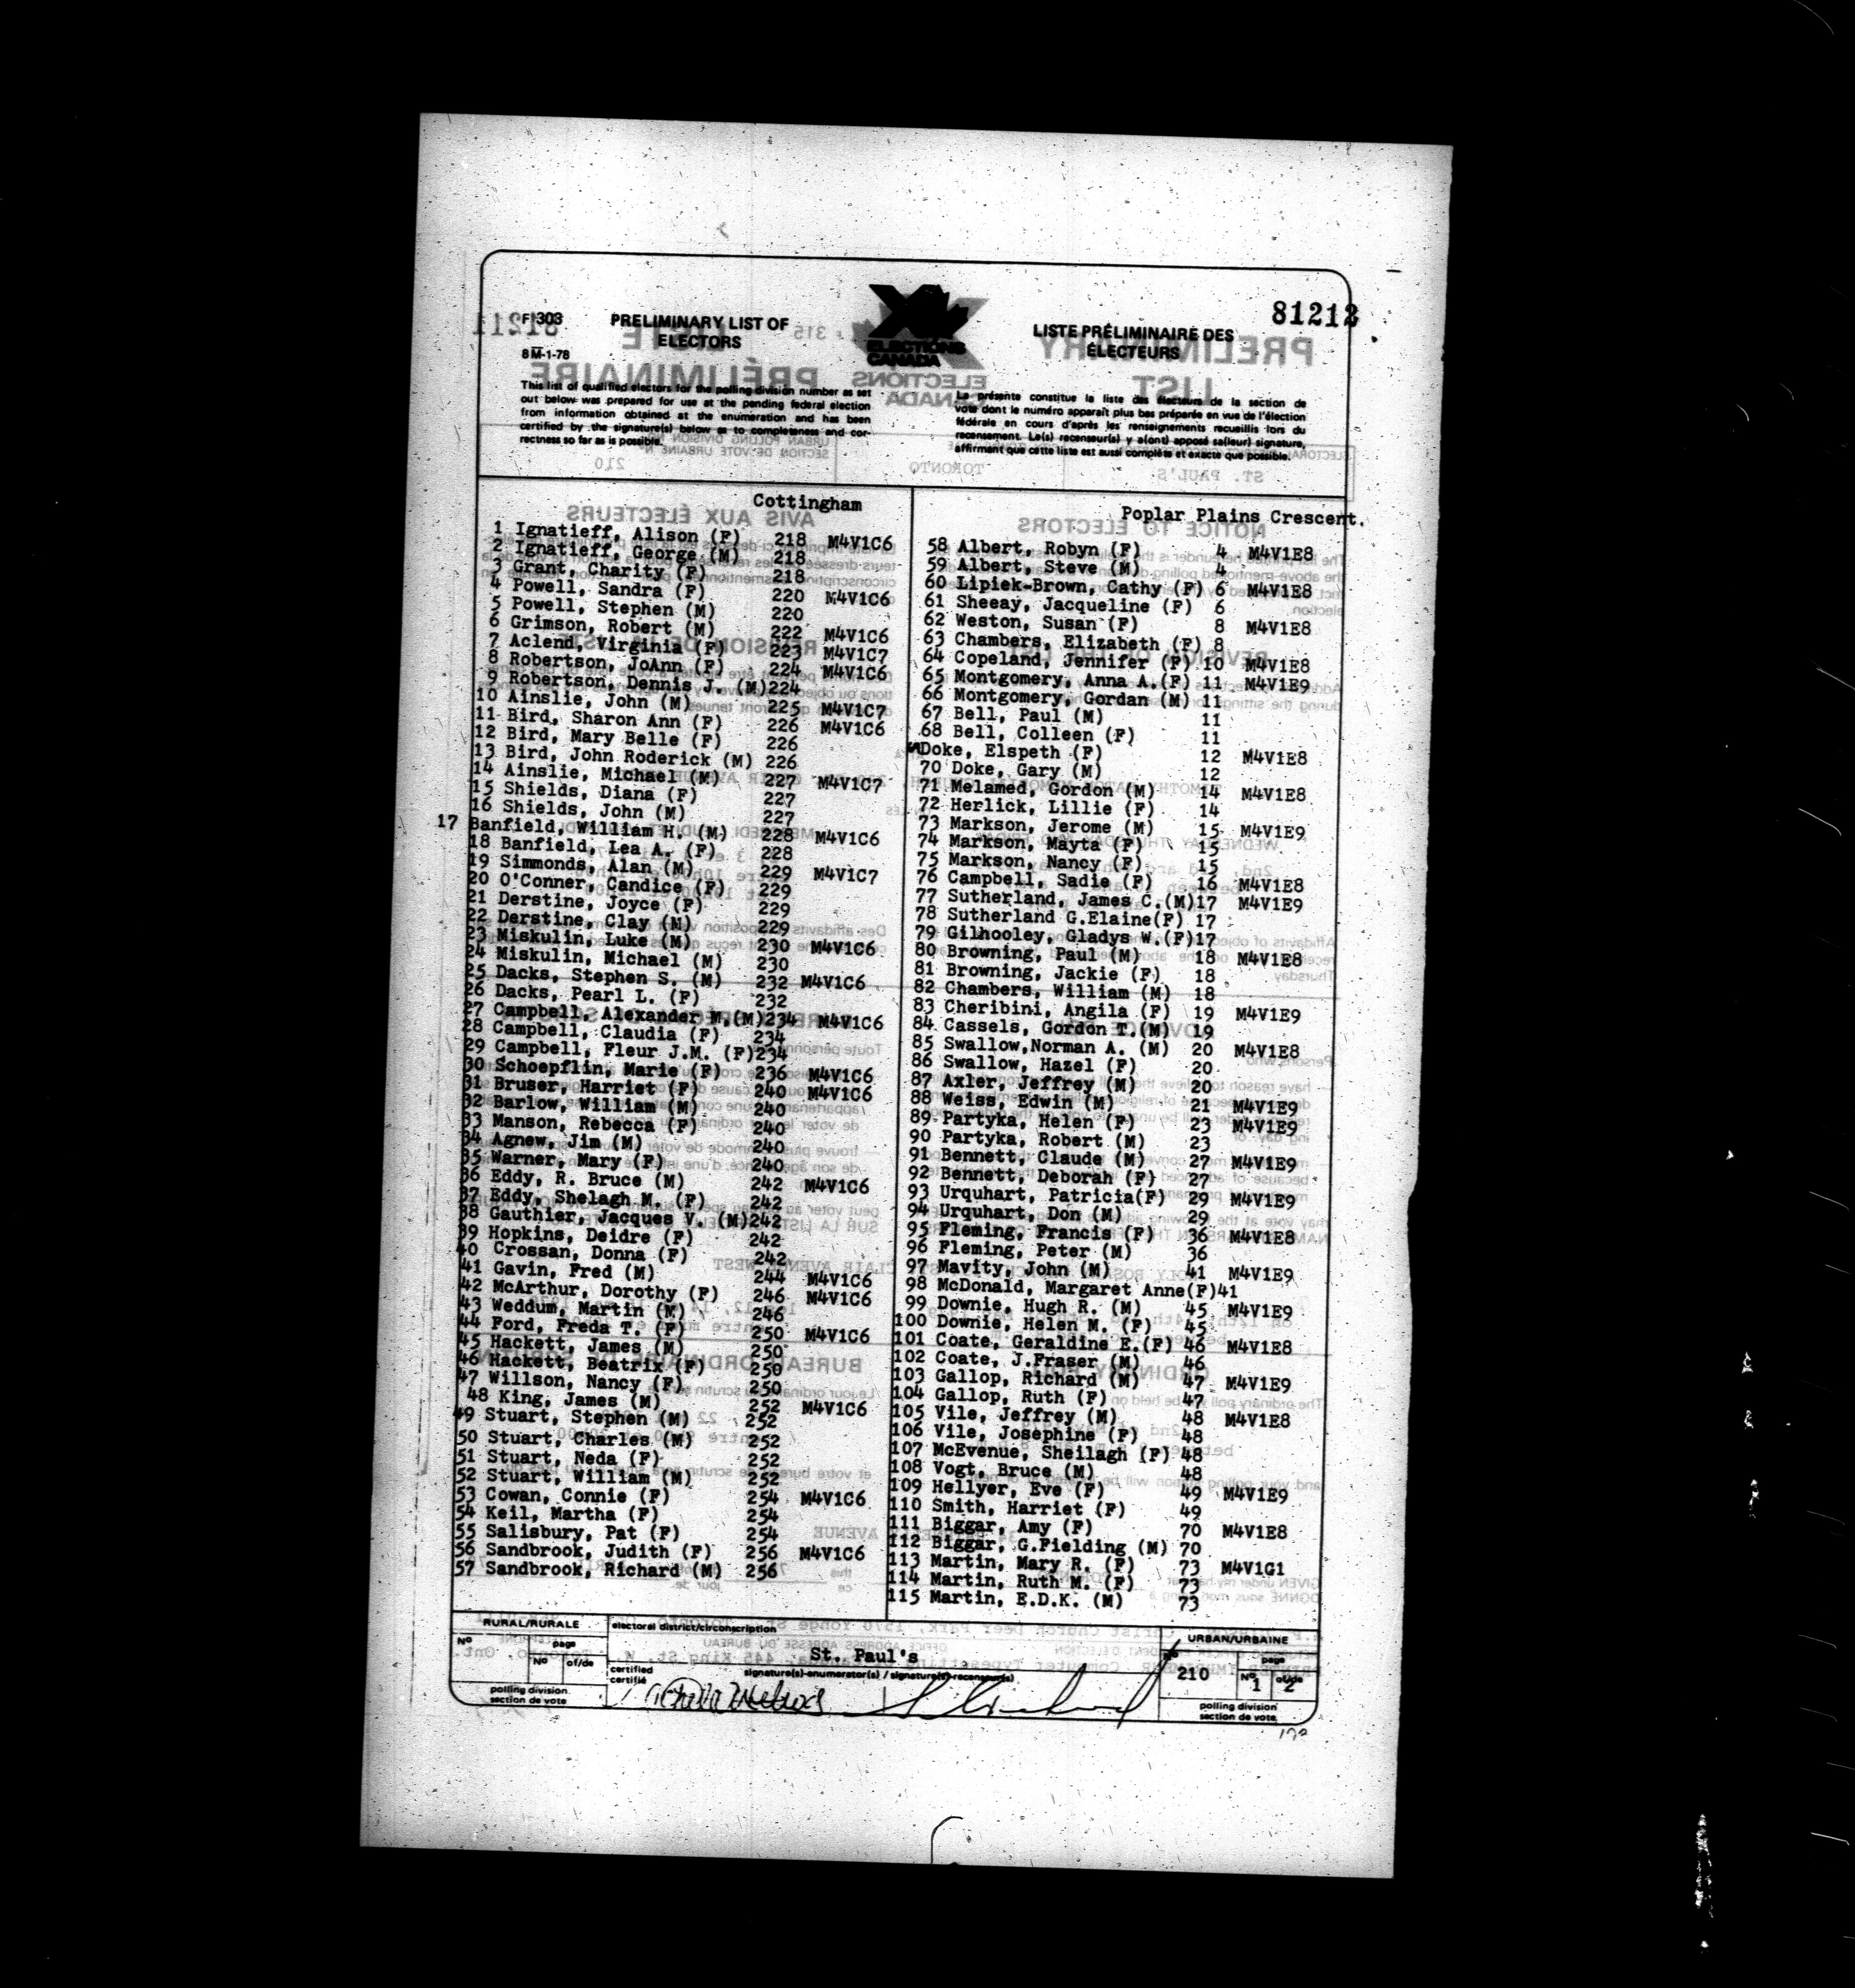 81212
F 303
PRELIMINARY LIST OF
ELECTORS
8 M-1-78
ELECTIONS
CANADA
LISTE PRÉLIMINAIRE DES
ÉLECTEURS
This list of qualified electors for the polling division number as set
out below was prepared for use at the pending federal election
from information obtained at the enumeration and has been
certified by the signature(s) below as to completeness and cor-
rectness so far as is possible.
La présente constitue la liste des électeurs de la section de
vote dont le numéro apparaît plus bas préparée en vue de l'élection
fédérale en cours d'après les renseignements recueillis lors du
recensement. Le(s) recenseur(s) y a(ont) apposé sa(leur) signature,
affirmant que cette liste est aussi complète et exacte que possible.
Cottingham
1 Ignatieff, Alison (F) 218 M4V1C6
2 Ignatieff, George (M) 218
3 Grant, Charity (F) 218
4 Powell, Sandra (F) 220 M4V1C6
5 Powell, Stephen (M) 220
6 Grimson, Robert (M) 222 M4V1C6
7 Aclend, Virginia (F) 223 M4V1C7
8 Robertson, JoAnn (F) 224 M4V1C6
9 Robertson, Dennis J. (M) 224
10 Ainslie, John (M) 225 M4V1C7
11 Bird, Sharon Ann (F) 226 M4V1C6
12 Bird, Mary Belle (F) 226
13 Bird, John Roderick (M) 226
14 Ainslie, Michael (M) 227 M4V1C7
15 Shields, Diana (F) 227
16 Shields, John (M) 227
17 Banfield, William H. (M) 228 M4V1C6
18 Banfield, Lea A. (F) 228
19 Simmonds, Alan (M) 229 M4V1C7
20 O'Conner, Candice (F) 229
21 Derstine, Joyce (F) 229
22 Derstine, Clay (M) 229
23 Miskulin, Luke (M) 230 M4V1C6
24 Miskulin, Michael (M) 230
25 Dacks, Stephen S. (M) 232 M4V1C6
26 Dacks, Pearl L. (F) 232
27 Campbell, Alexander M.(M)234 M4V1C6
28 Campbell, Claudia (F) 234
29 Campbell, Fleur J.M. (F)234
30 Schoepflin, Marie (F) 236 M4V1C6
31 Bruser, Harriet (F) 240 M4V1C6
32 Barlow, William (M) 240
33 Manson, Rebecca (F) 240
34 Agnew, Jim (M) 240
35 Warner, Mary (F) 240
36 Eddy, R. Bruce (M) 242 M4V1C6
37 Eddy, Shelagh M. (F) 242
38 Gauthier, Jacques V. (M)242
39 Hopkins, Deidre (F) 242
40 Crossan, Donna (F) 242
41 Gavin, Fred (M) 244 M4V1C6
42 McArthur, Dorothy (F) 246 M4V1C6
43 Weddum, Martin (M) 246
44 Ford, Freda T. (F) 250 M4V1C6
45 Hackett, James (M) 250
46 Hackett, Beatrix (F) 250
47 Willson, Nancy (F) 250
48 King, James (M) 252 M4V1C6
49 Stuart, Stephen (M) 252
50 Stuart, Charles (M) 252
51 Stuart, Neda (F) 252
52 Stuart, William (M) 252
53 Cowan, Connie (F) 254 M4V1C6
54 Keil, Martha (F) 254
55 Salisbury, Pat (F) 254
56 Sandbrook, Judith (F) 256 M4V1C6
57 Sandbrook, Richard (M) 256
Poplar Plains Crescent.
58 Albert, Robyn (F) 4 M4V1E8
59 Albert, Steve (M) 4
60 Lipiek-Brown, Cathy (F) 6 M4V1E8
61 Sheeay, Jacqueline (F) 6
62 Weston, Susan (F) 8 M4V1E8
63 Chambers, Elizabeth (F) 8
64 Copeland, Jennifer (F) 10 M4V1E8
65 Montgomery, Anna A.(F) 11 M4V1E9
66 Montgomery, Gordan (M) 11
67 Bell, Paul (M) 11
68 Bell, Colleen (F) 11
Doke, Elspeth (F) 12 M4V1E8
70 Doke, Gary (M) 12
71 Melamed, Gordon (M) 14 M4V1E8
72 Herlick, Lillie (F) 14
73 Markson, Jerome (M) 15 M4V1E9
74 Markson, Mayta (F) 15
75 Markson, Nancy (F) 15
76 Campbell, Sadie (F) 16 M4V1E8
77 Sutherland, James C.(M)17 M4V1E9
78 Sutherland G.Elaine(F) 17
79 Gilhooley, Gladys W.(F)17
80 Browning, Paul (M) 18 M4V1E8
81 Browning, Jackie (F) 18
82 Chambers, William (M) 18
83 Cheribini, Angila (F) 19 M4V1E9
84 Cassels, Gordon T.(M) 19
85 Swallow,Norman A. (M) 20 M4V1E8
86 Swallow, Hazel (F) 20
87 Axler, Jeffrey (M) 20
88 Weiss, Edwin (M) 21 M4V1E9
89 Partyka, Helen (F) 23 M4V1E9
90 Partyka, Robert (M) 23
91 Bennett, Claude (M) 27 M4V1E9
92 Bennett, Deborah (F) 27
93 Urquhart, Patricia(F) 29 M4V1E9
94 Urquhart, Don (M) 29
95 Fleming, Francis (F) 36 M4V1E8
96 Fleming, Peter (M) 36
97 Mavity, John (M) 41 M4V1E9
98 McDonald, Margaret Anne(F)41
99 Downie, Hugh R. (M) 45 M4V1E9
100 Downie, Helen M. (F) 45
101 Coate, Geraldine E.(F) 46 M4V1E8
102 Coate, J.Fraser (M) 46
103 Gallop, Richard (M) 47 M4V1E9
104 Gallop, Ruth (F) 47
105 Vile, Jeffrey (M) 48 M4V1E8
106 Vile, Josephine (F) 48
107 McEvenue, Sheilagh (F) 48
108 Vogt, Bruce (M) 48
109 Hellyer, Eve (F) 49 M4V1E9
110 Smith, Harriet (F) 49
111 Biggar, Amy (F) 70 M4V1E8
112 Biggar, G.Fielding (M) 70
113 Martin, Mary R. (F) 73 M4V1G1
114 Martin, Ruth M. (F) 73
115 Martin, E.D.K. (M) 73
RURAL/RURALE
No page
No of/de
polling division
section de vote
electoral district/circonscription
St. Paul's
certified
certifié
signature(s)-enumerator(s) / signature(s)-recenseur(s)
URBAN/URBAINE
No page
210 No 1 of/de 2
polling division
section de vote